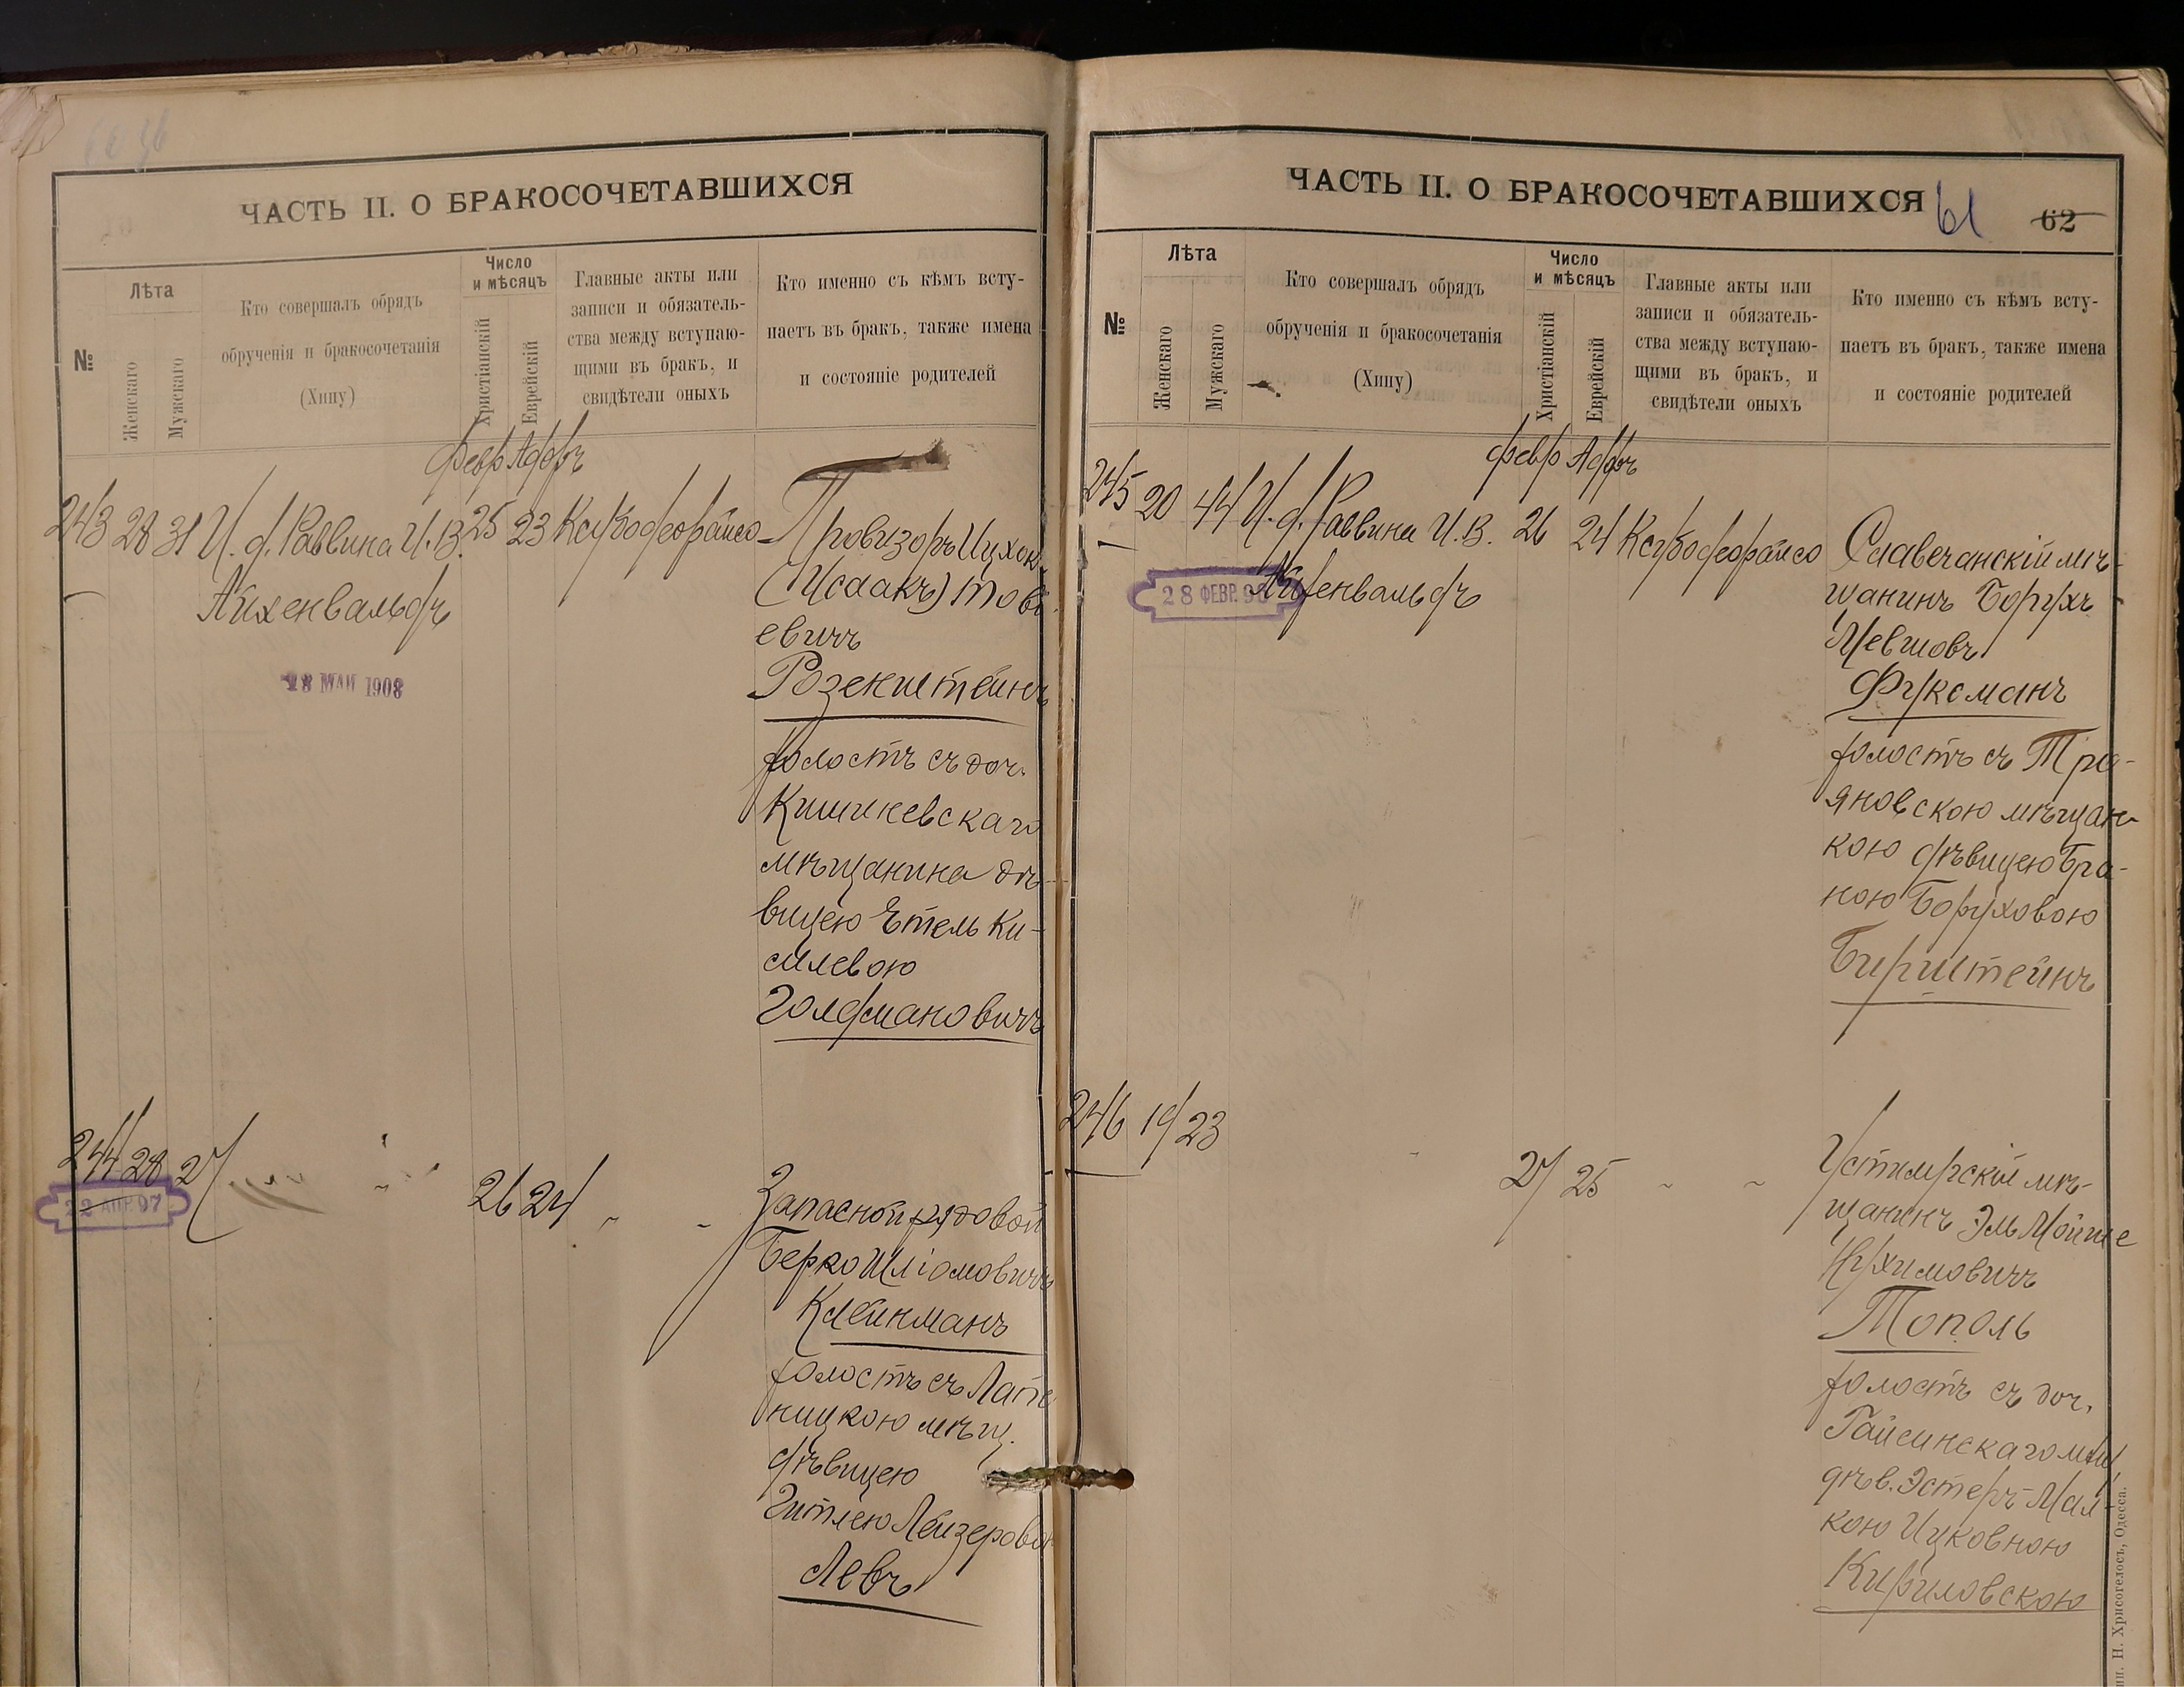 ЧАСТЬ II. О БРАКОСОЧЕТАВШИХСЯ
№
Лѣта
Женскаго
Мужскаго
Кто совершалъ обрядъ
обрученія и бракосочетанія
(Хипу)
Число
и мѣсяцъ
Христіанскій
Еврейскій
Главные акты или
записи и обязатель-
ства между вступаю-
щими въ бракъ, и
свидѣтели оныхъ
Кто именно съ кѣмъ всту-
паетъ въ бракъ, также имена
и состояніе родителей
Февр Адаръ
243 28 31 И. д. Раввина И. В. 25 23
Айхенвальдъ
28 МАЙ 1908
Провизоръ Ицхок
(Исаакъ) Тові
евичъ
Розенштейнъ
холостъ съ доч.
Кишиневскаго
мѣщанина дѣ-
вицею Этель Ки-
силевою
Голдмановичъ
244 28 27
22 АПР. 97
26 24
Запасной рядовой
Берко Шліомовичъ
Клейнманъ
холостъ съ
мѣщ.
дѣвицею
Гитлею Лейзерово
Левъ
ЧАСТЬ II. О БРАКОСОЧЕТАВШИХСЯ
61
62
№
Лѣта
Женскаго
Мужскаго
Кто совершалъ обрядъ
обрученія и бракосочетанія
(Хипу)
Число
и мѣсяцъ
Христіанскій
Еврейскій
Главные акты или
записи и обязатель-
ства между вступаю-
щими въ бракъ, и
свидѣтели оныхъ
Кто именно съ кѣмъ всту-
паетъ въ бракъ, также имена
и состояніе родителей
Февр Адаръ
245 20 44 И. д. Раввина И. В. 26 24
Айхенвальдъ
28 ФЕВР. 98
Славечанскій мѣ-
щанинъ Борухъ
Мевшовъ
Фуксманъ
холостъ съ Тро-
яновскою мѣщан-
кою дѣвицею Бра-
ною Боруховою
Бирштейнъ
246 19 23
27 25
Устимрскій мѣ-
щанинъ Эль Мойше
Нухимовичъ
Тополь
холостъ съ доч.
Гайсинскаго мѣщ.
дѣв. Эстеръ-Мал-
кою Ицковною
Кириловскою
Н. Хрисогелосъ, Одесса.